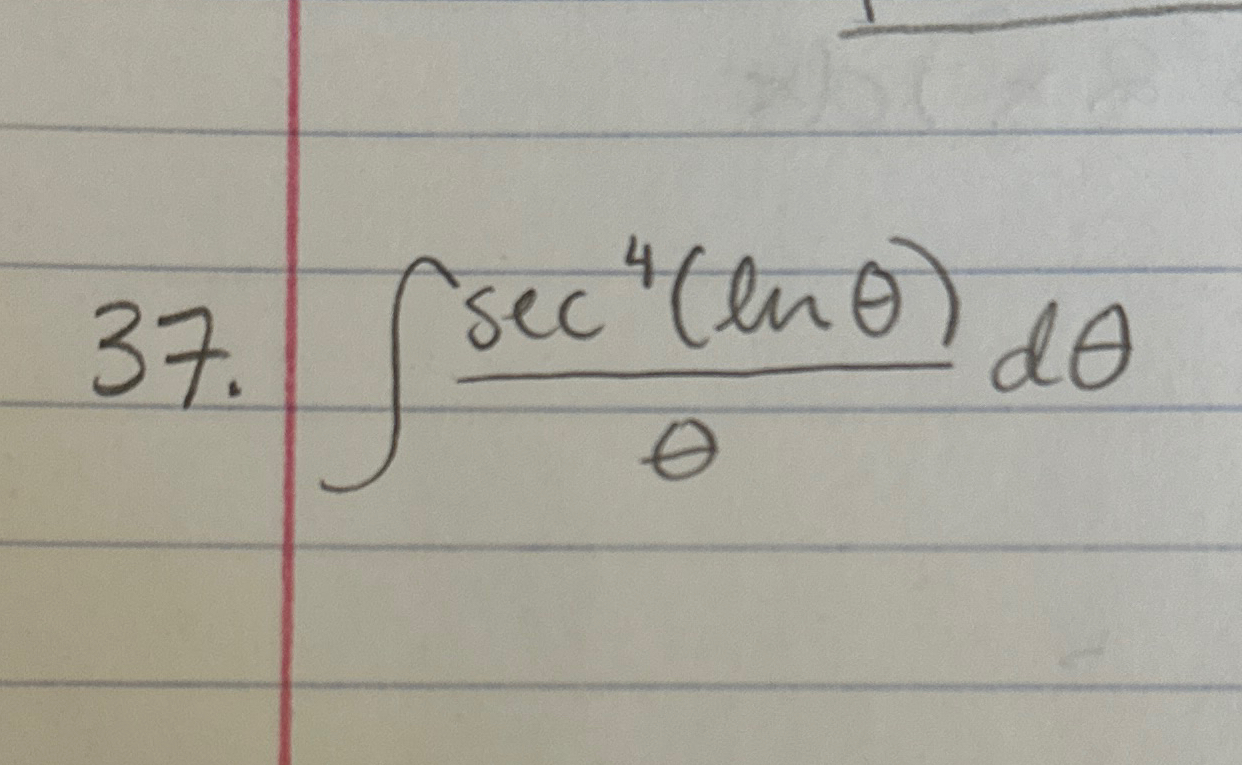 37. ∫ sec⁴(ln θ) / θ dθ